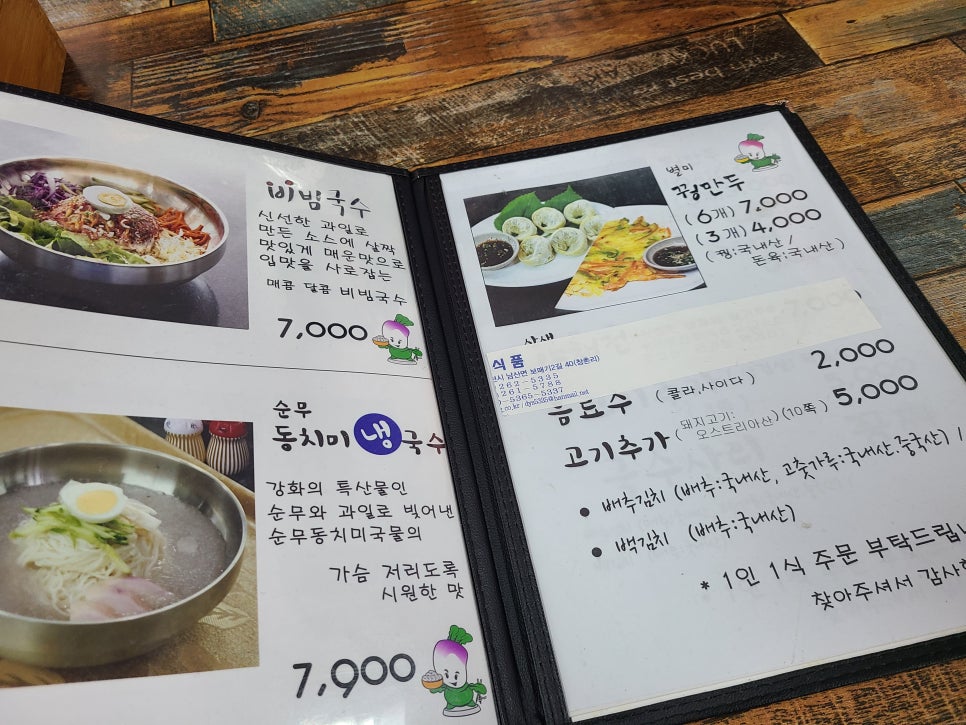 비빔국수
신선한 과일로
만든 소스에 살짝
맛있게 매운맛으로
입맛을 사로잡는
매콤 달콤 비빔국수
7,000
순무
동치미 냉국수
강화의 특산물인
순무와 과일로 빚어낸
순무동치미국물의
가슴 저리도록
시원한 맛
7,900
별미
꿩만두
(6개) 7,000
(3개) 4,000
(꿩:국내산 /
돈육:국내산)
식품
남산면 보매기2길 40(창촌리)
262-5335
261-5788
-5365-5337
음료수 (콜라,사이다) 2,000
고기추가 (돼지고기: 오스트리아산) (10쪽) 5,000
• 배추김치 (배추:국내산, 고춧가루:국내산.중국산) /
• 백김치 (배추:국내산)
* 1인 1식 주문 부탁드립니
찾아주셔서 감사